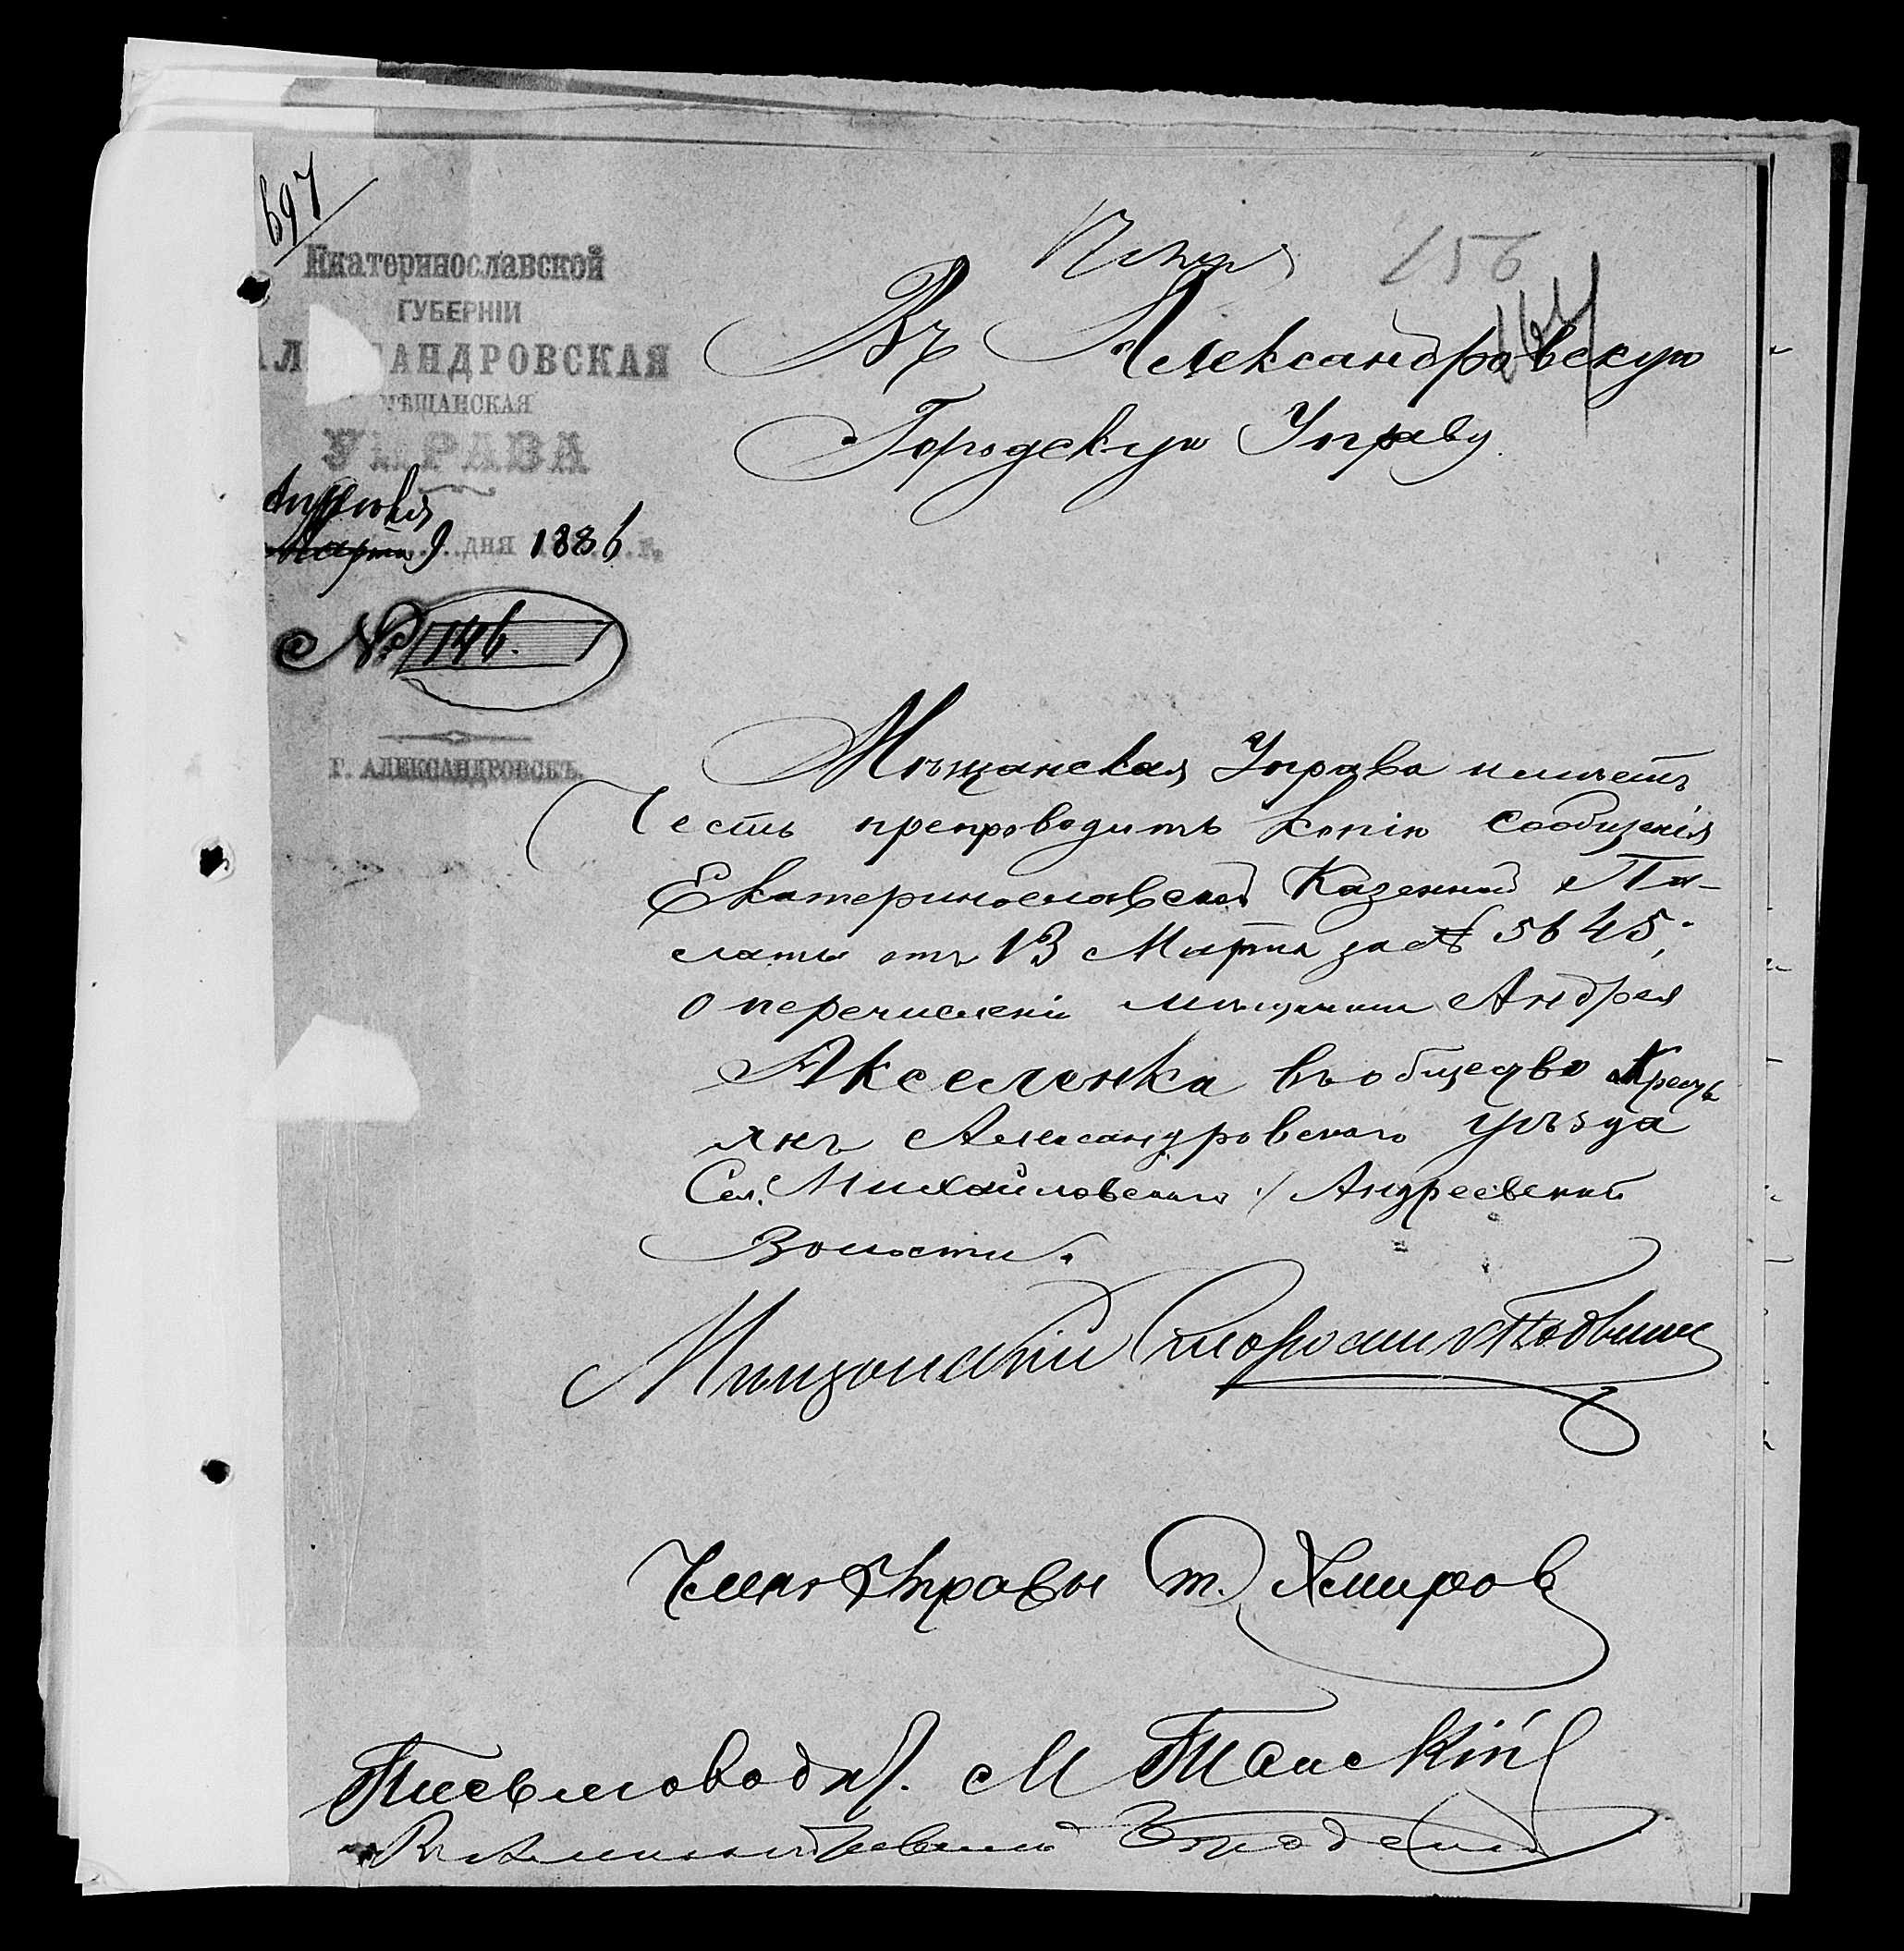 697
156
164
Екатеринославской
ГУБЕРНІИ
АЛ САНДРОВСКАЯ
МѢЩАНСКАЯ
УПРАВА
Апрѣля
Марта 9 дня 1886 г.
№ 746.
Г. АЛЕКСАНДРОВСКЪ.
Въ Александровскую
Городскую Управу.
Мѣщанская Управа имѣетъ
честь препроводить копію сообщенія
Екатеринославской Казенной Па-
латы отъ 13 Марта за № 5645,
о перечисленіи мѣщанина Андрея
Акселенка въ общество Крестъ
янъ Александровскаго уѣзда
Сел. Михайловскаго / Андреевской
Волости.
Мѣщанскій Староста
Членъ Управы
Письмоводи.